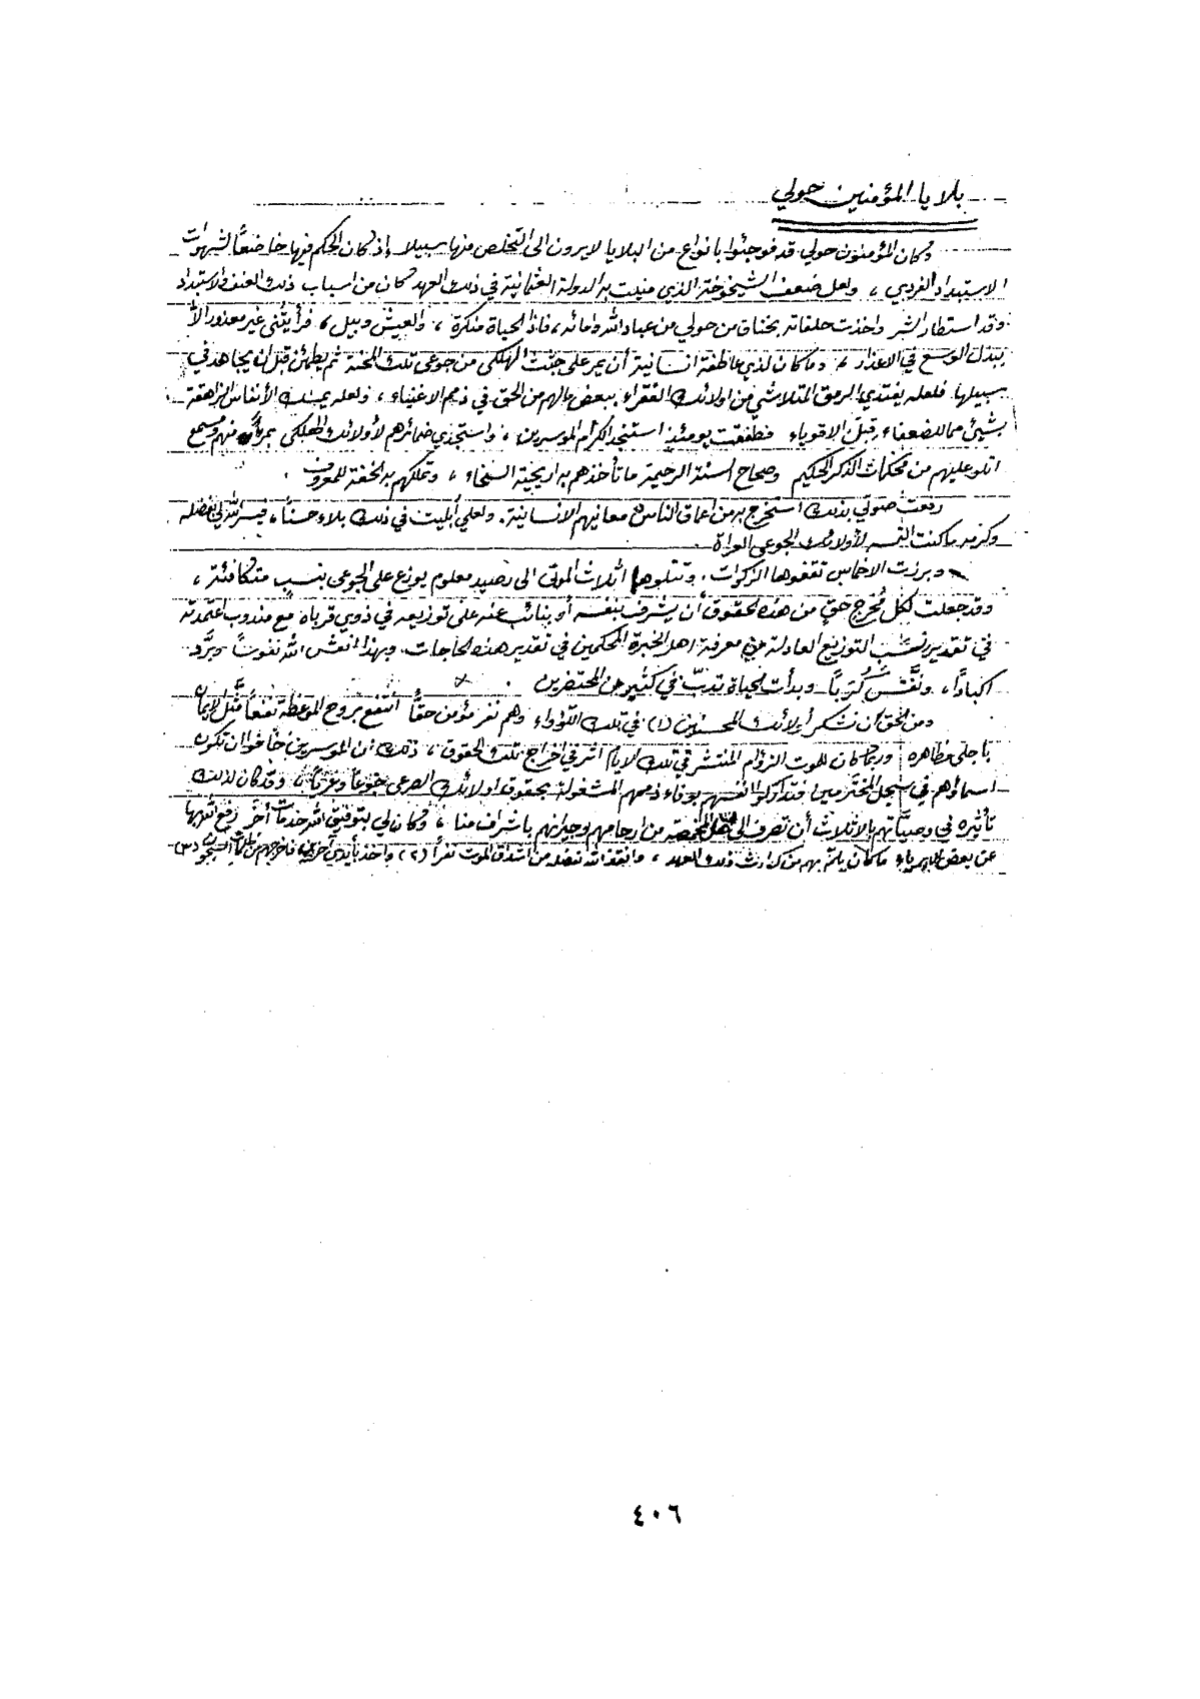 بلايا المؤمنين حولي
وكان المؤمنون حولي قد فوجئوا بانواع من البلايا لا يرون الى التخلص منها سبيلا إذ كان الحكم فيها خاضعاً لشهوات
الاستبداد الفردي ، ولعل ضعف الشيخوخة الذي منيت به الدولة العثمانية في ذلك العهد كان من اسباب ذلك العنف والاستبداد
وقد استطار الشر واخذت حلقاته بخناق من حولي من عباد الله وامائه ، فاذا الحياة منكرة ، والعيش وبيل ، فرأيتني غير معذور الا
ببذل الوسع في الاعذار ، وما كان لذي عاطفة انسانية أن يمر على جثث الهلكى من جوعى تلك المحنة ثم يطمئن قبل ان يجاهد في
سبيلها فلعله يفتدي الرمق المتلاشي من اولائك الفقراء ببعض مالهم من الحق في ذمم الاغنياء ، ولعله يمسك الأنفاس الزاهقة
بشيئ مما للضعفاء قبل الاقوياء فطفقت يومئذ استنجد اكرام الموسرين ، واستجدي ضمائرهم لأولائك الهلكى بمرأى منهم ومسمع
اتلو عليهم من محكمات الذكر الحكيم وصحاح السنة الرحيمة ما تأخذهم به اريحية السخاء ، وتملكهم به الخفة للمعروف .
رفعت صوتي بذلك استخرج به من اعماق الناس معانيهم الانسانية . ولعلي أبليت في ذلك بلاء حسناً ، فيسر الله لي بفضله
وكرمه ما كنت التمسه لأولائك الجوعى العراة
وبرزت الاخماس تقفوها الزكوات ، وتتلوها اثلاث الموتى الى رصيد معلوم يوزع على الجوعى بنسب متكافئة ،
وقد جعلت لكل مُخرج حق من هذه الحقوق أن يشرف بنفسه أو بنائب عنه على توزيعه في ذوي قرباه مع مندوب اعتمدته
في تقدير نسب التوزيع العادلة من معرفة اهل الخبرة المحكمين في تقدير هذه الحاجات . وبهذا انعش الله نفوساً وبرَّد
اكباداً ، ونفَّس كُرَباً وبدأت الحياة تدبّ في كثير من المحتضرين .
ومن الحق ان نشكر أولائك المحسنين (١) في تلك اللأواء وهم نفر مؤمن حقاً انتفع بروح الموعظة نفعاً مثّل الايمان
باجلى مظاهره وربما كان للموت الزؤام المنتشر في تلك الايام اثر في اخراج تلك الحقوق ، ذلك ان الموسرين خافوا ان تكون
اسماؤهم في سجل المخترمين فتداركوا انفسهم بوفاء ذممهم المشغولة بحقوق اولائك الصرعى جوعاً وعرياً ، وقد كان لذلك
تأثيره في وصيّاتهم بالاثلاث أن تصرف الى اهل المخمصة من ارحامهم وجيرانهم باشراف منا ، وكان لي بتوفيق الله خدمات أخر رفع الله بها
عن بعض الابرياء ما كان يلم بهم من كوارث ذلك العهد ، وانقذ الله بفضله من اشداق الموت نفراً (٢) واخذ بأيدي آخرين فاخرجهم من ظلمات السجون (٣)
٤٠٦